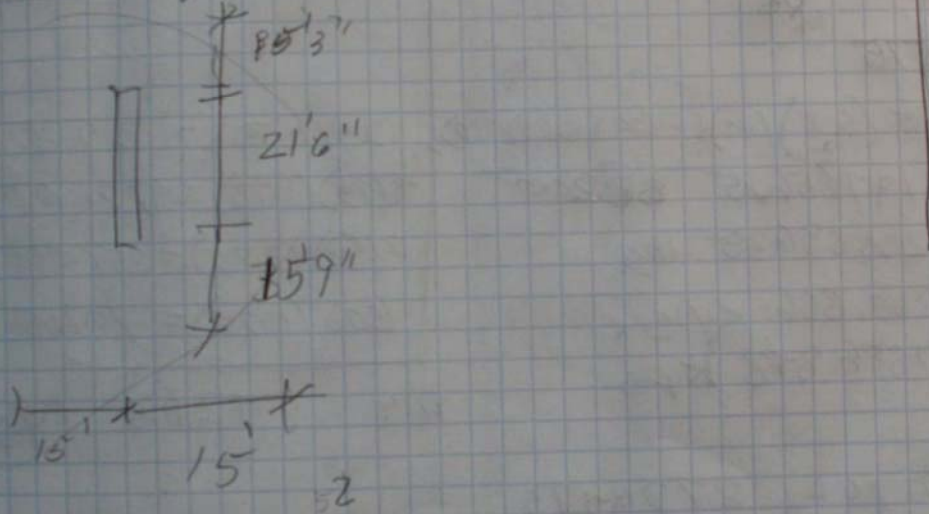 15'3"
21'6"
15'9"
15'
15'
2